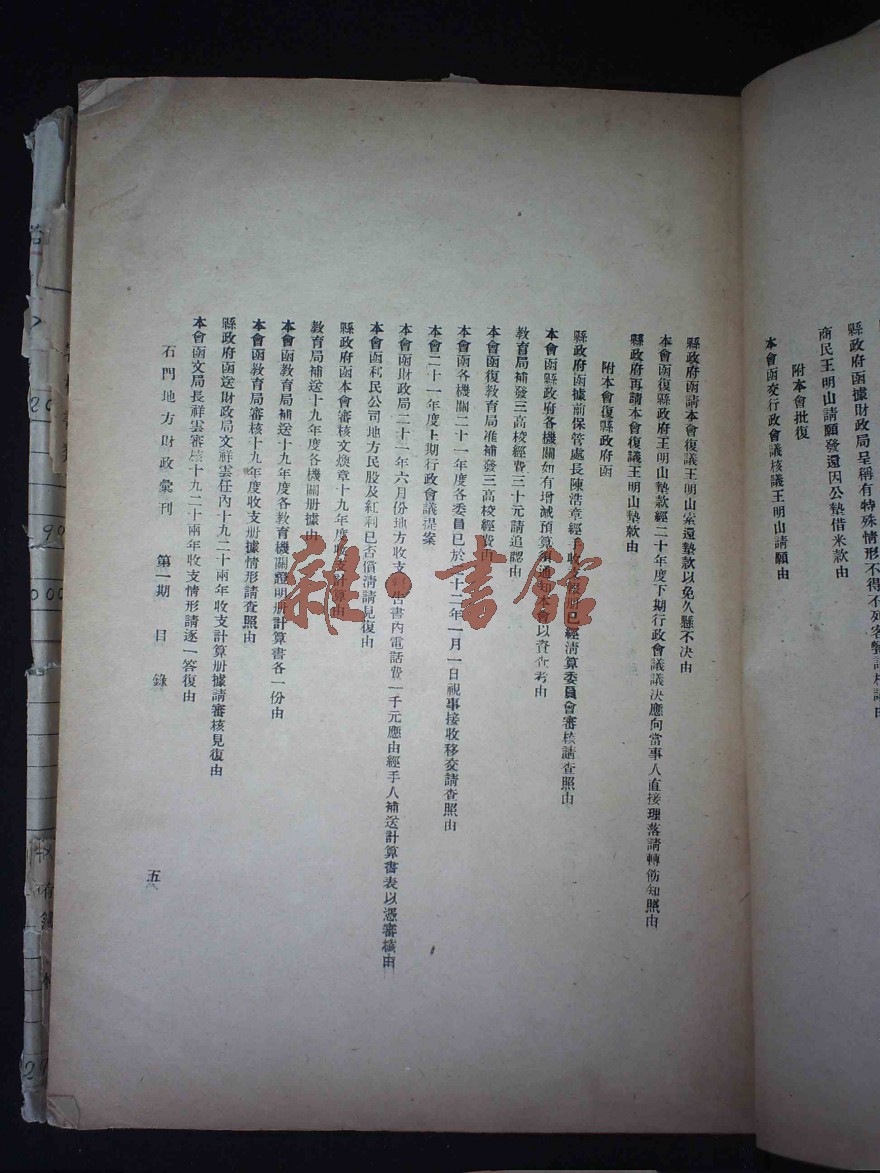 縣政府函據財政局呈稱有特殊情形不得不列
商民王明山請願發還因公墊借米款由
附本會批復
本會函交行政會議核議王明山請願由
縣政府函請本會復議王明山索還墊款以免久懸不决由
本會函復縣政府王明山墊款經二十年度下期行政會議議决應向當事人直接理落請轉飭知照由
縣政府再請本會復議王明山墊款由
附本會復縣政府函
縣政府函據前保管處長陳浩章經 收 報册已經清算委員會審核請查照由
教育局補發三高校經費三十元請追認由
本會函縣政府各機關如有增减預算須通知本會以資查考由
本會函復教育局准補發三高校經費由
本會函各機關二十一年度各委員已於 十二年一月一日視事接收移交請查照由
本會二十一年度上期行政會議提案
本會函財政局二十一年六月份地方收支 告書內電話費一千元應由經手人補送計算書表以憑審核由
本會函利民公司地方民股及紅利已否償清請見復由
縣政府函本會審核文煥章十九年度收支計算由
教育局補送十九年度各機關册據由
本會函教育局補送十九年度各教育機關證明册計算書各一份由
本會函教育局審核十九年度收支册據情形請查照由
縣政府函送財政局文祥雲任內十九二十兩年收支計算册據請審核見復由
本會函文局長祥雲審核十九二十兩年收支情形請逐一答復由
石門地方財政彙刊 第一期 目錄
五
雜·書館